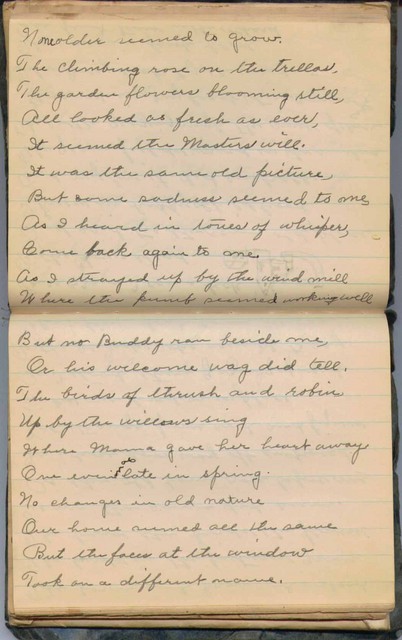 None older seemed to grow.
The climbing rose on the trellas,
The garden flowers blooming still,
All looked as fresh as ever,
It seemed the Masters will.
It was the same old picture,
But some sadness seemed to me,
As I heard in tones of whisper,
Come back again to me.
As I strayed up by the wind mill
Where the pump seemed working well
But no Buddy ran beside me,
Or his welcome wag did tell.
The birds of thrush and robin
Up by the willows sing
Where Mama gave her heart away
One late in spring.
No changes in old nature
Our home seemed all the same
But the faces at the window
Took on a different name.